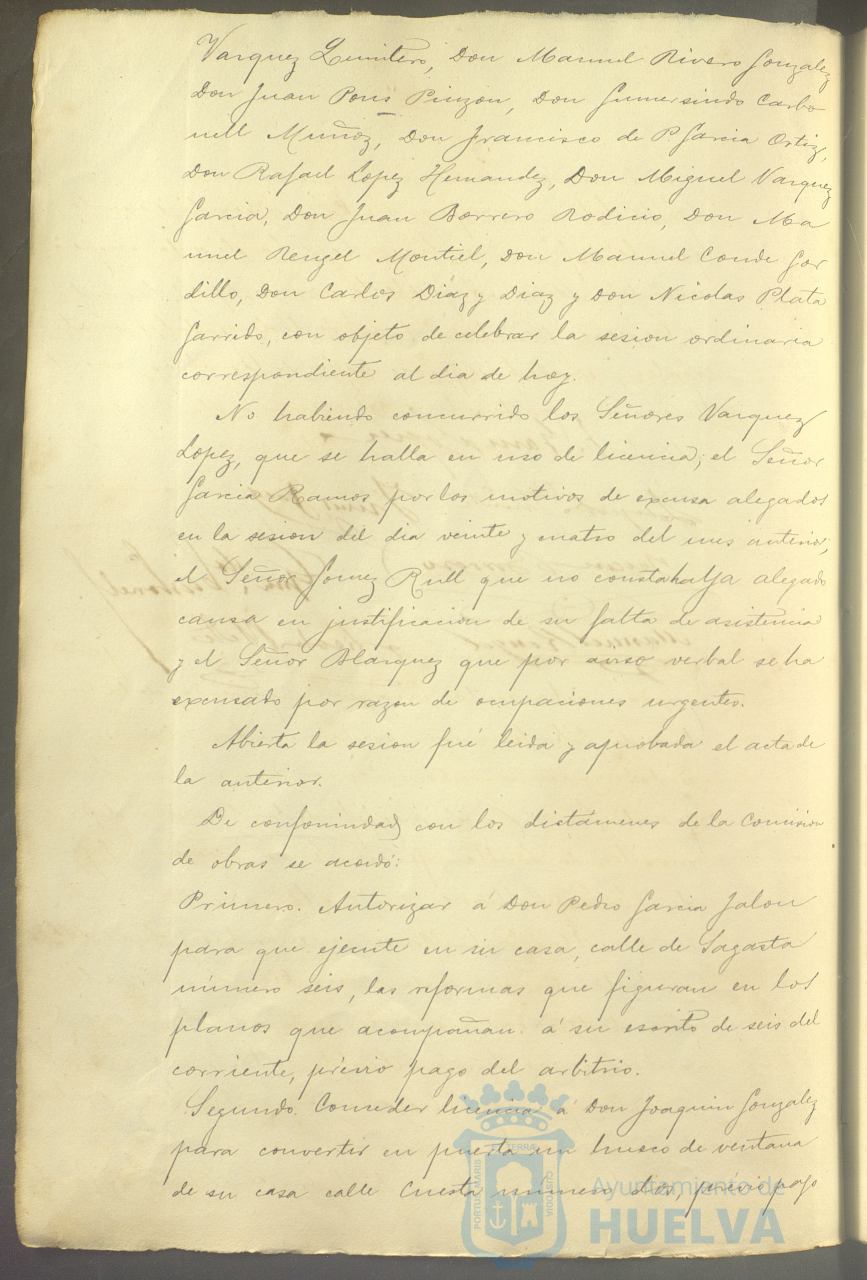 Vazquez Quintero, Don Manuel Rivero Gonzalez
Don Juan Pons Pinzon, Don Gumersindo Carbo
nell Muñoz, Don Francisco de P. Garcia Ortiz,
Don Rafael Lopez Hernandez, Don Miguel Vazquez
Garcia, Don Juan Borrero Rodicio, Don Ma
nuel Rengel Montiel, Don Manuel Conde Gor
dillo, Don Carlos Diaz y Diaz y Don Nicolas Plata
Garrido, con objeto de celebrar la sesion ordinaria
correspondiente al dia de hoy.
No habiendo concurrido los Señores Vazquez
Lopez, que se halla en uso de licencia; el Señor
Garcia Ramos por los motivos de excusa alegados
en la sesion del dia veinte y cuatro del mes anterior;
el Señor Gomez Rull que no consta haya alegado
causa en justificacion de su falta de asistencia
y el Señor Blazquez que por aviso verbal se ha
excusado por razon de ocupaciones urgentes.
Abierta la sesion fué leida y aprobada el acta de
la anterior.
De conformidad con los dictámenes de la Comision
de obras se acordó:
Primero. Autorizar á Don Pedro Garcia Jalon
para que ejecute en su casa, calle de Sagasta
número seis, las reformas que figuran en los
planos que acompañan á su escrito de seis del
corriente, prévio pago del arbitrio.
Segundo. Conceder licencia á Don Joaquin Gonzalez
para convertir en puerta un hueco de ventana
de su casa calle Cuesta número dos, prévio pago
PORTUS MARIS ET TERRÆ CUSTODIA
Ayuntamiento de
HUELVA